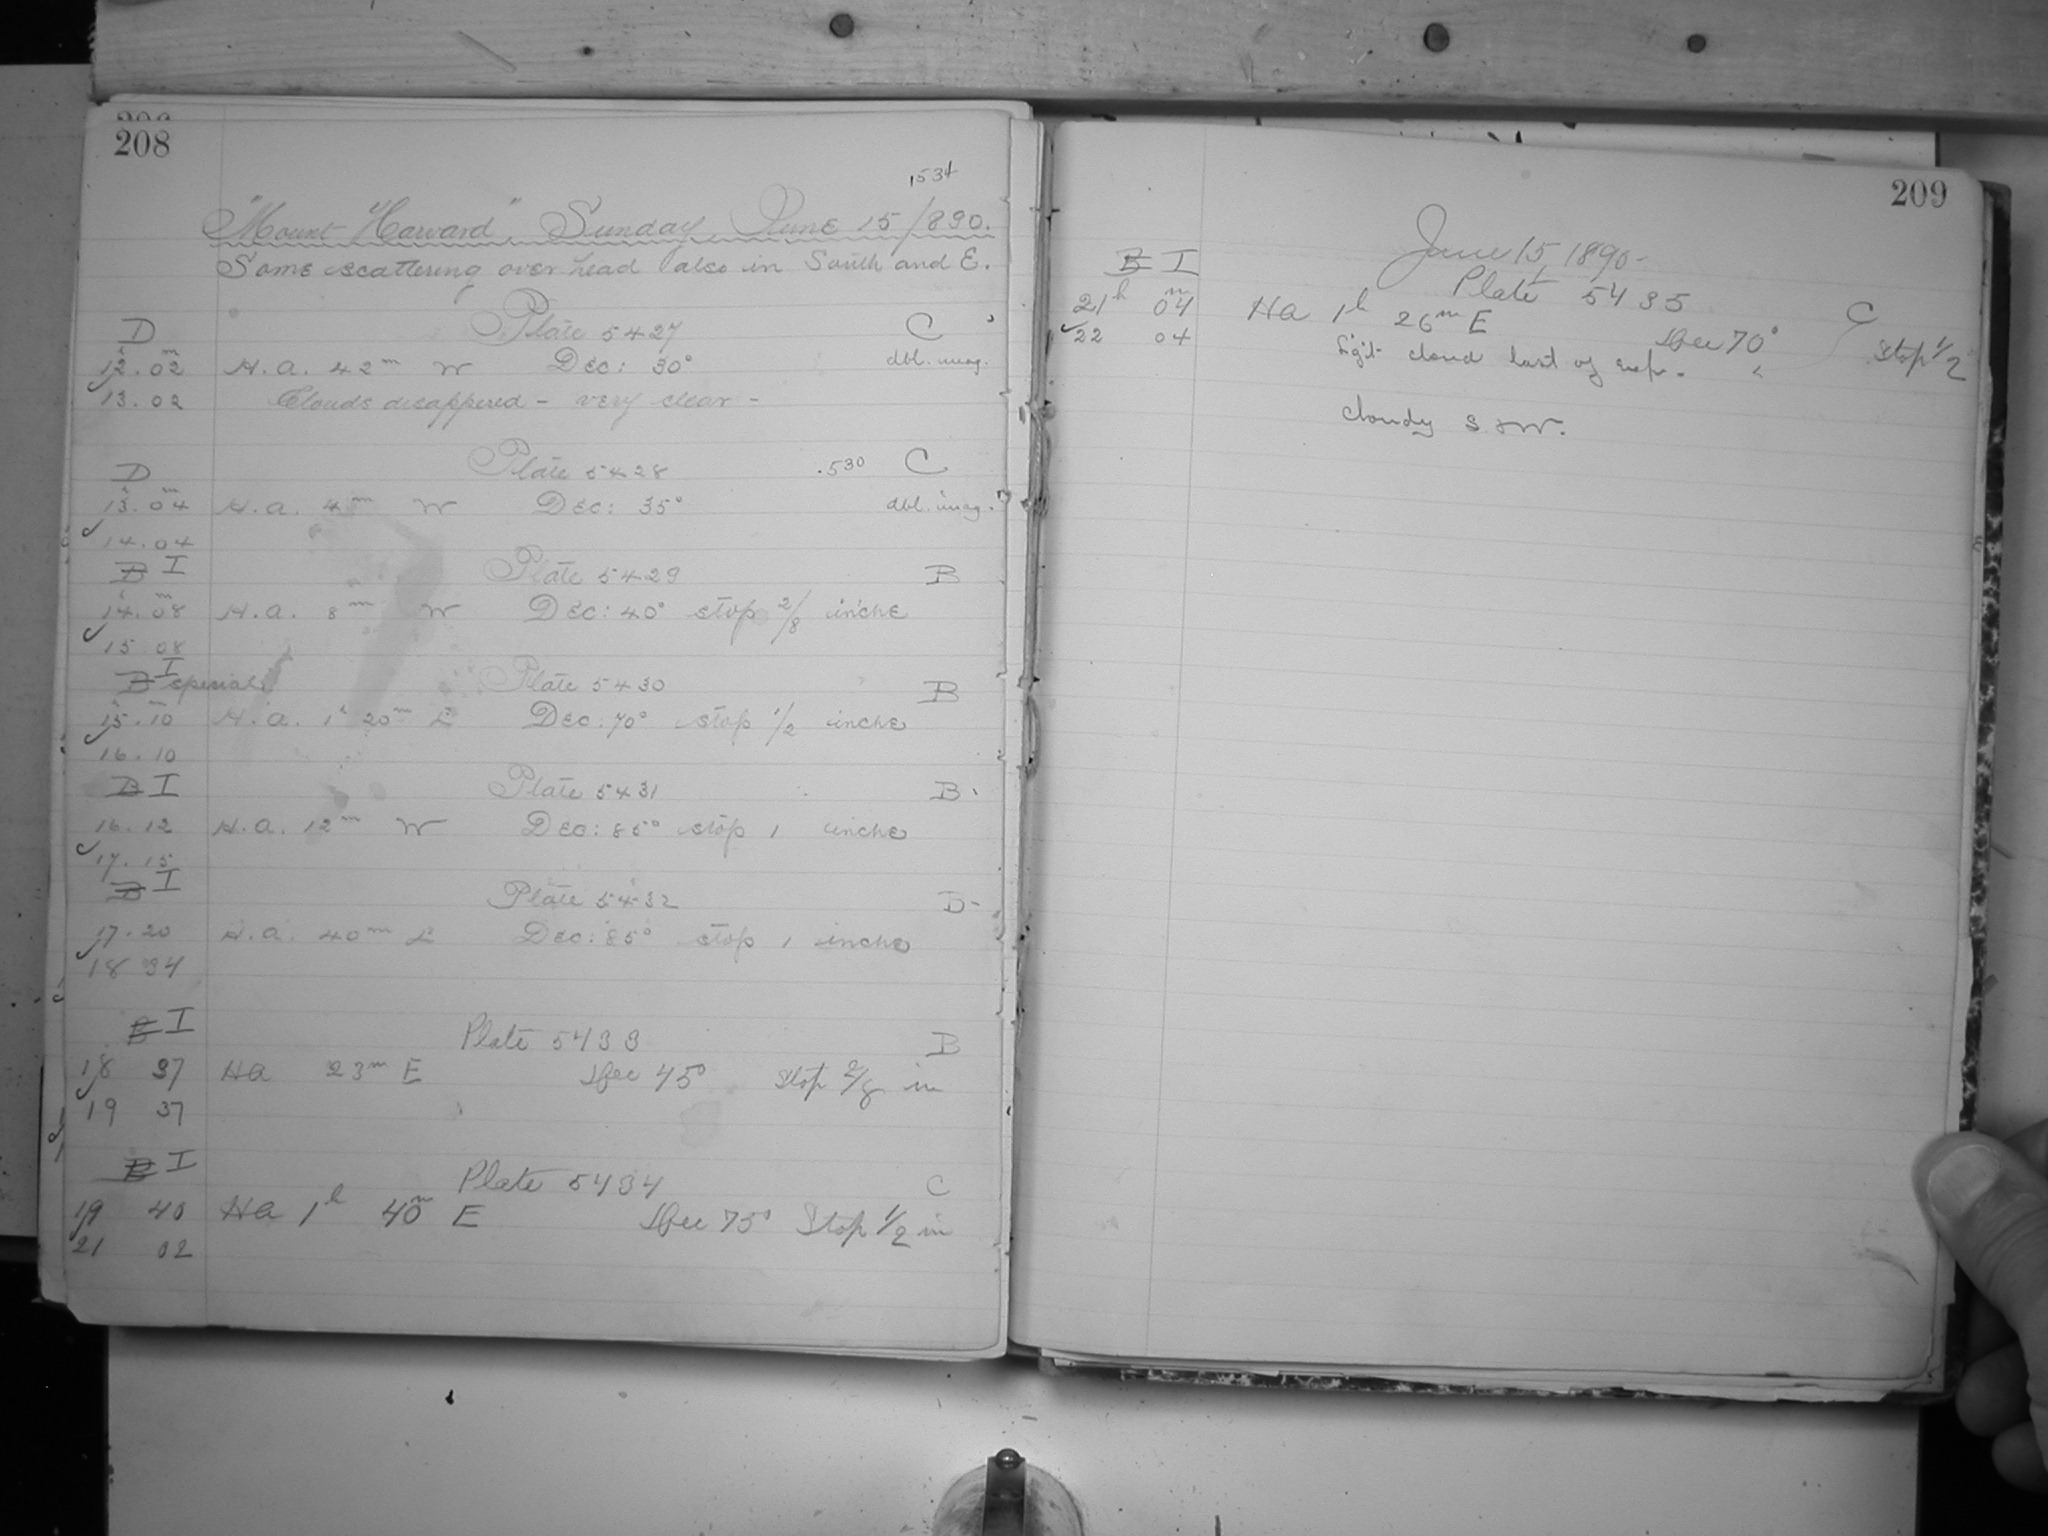 208
1534
"Mount Harvard", Sunday, June 15/890.
Some scattering over head also in South and E.
D Plate 5427 C
12h.02m H.a. 42m W Dec: 30° dbl. imag.
13.02 Clouds disappered - very clear -
D Plate 5428 .530 C
13h.04m H.a. 4m W Dec: 35° dbl. imag.
14.04
B I Plate 5429 B
14h.08m H.a. 8m W Dec: 40° stop 2/8 inche
15 08
B I special Plate 5430 B
15h.10m H.a. 1h 20m E Dec: 70° stop 1/2 inche
16.10
B I Plate 5431 B
16.12 H.a. 12m W Dec: 85° stop 1 inche
17.15
B I Plate 5432 D-
17.20 H.a. 40m E Dec: 85° stop 1 inche
18 34
B I Plate 5433 B
18 37 Ha 23m E Dec 45° Stop 2/8 in
19 37
B I Plate 5434 C
19 40 Ha 1h 40m E Dec 75° Stop 1/2 in
21 02
209
June 15, 1890-
B I Plate 5435 C
21h 04m Ha 1h 26m E Dec 70° Stop 1/2
22 04 Ligt cloud last of exp.
cloudy S. & W.